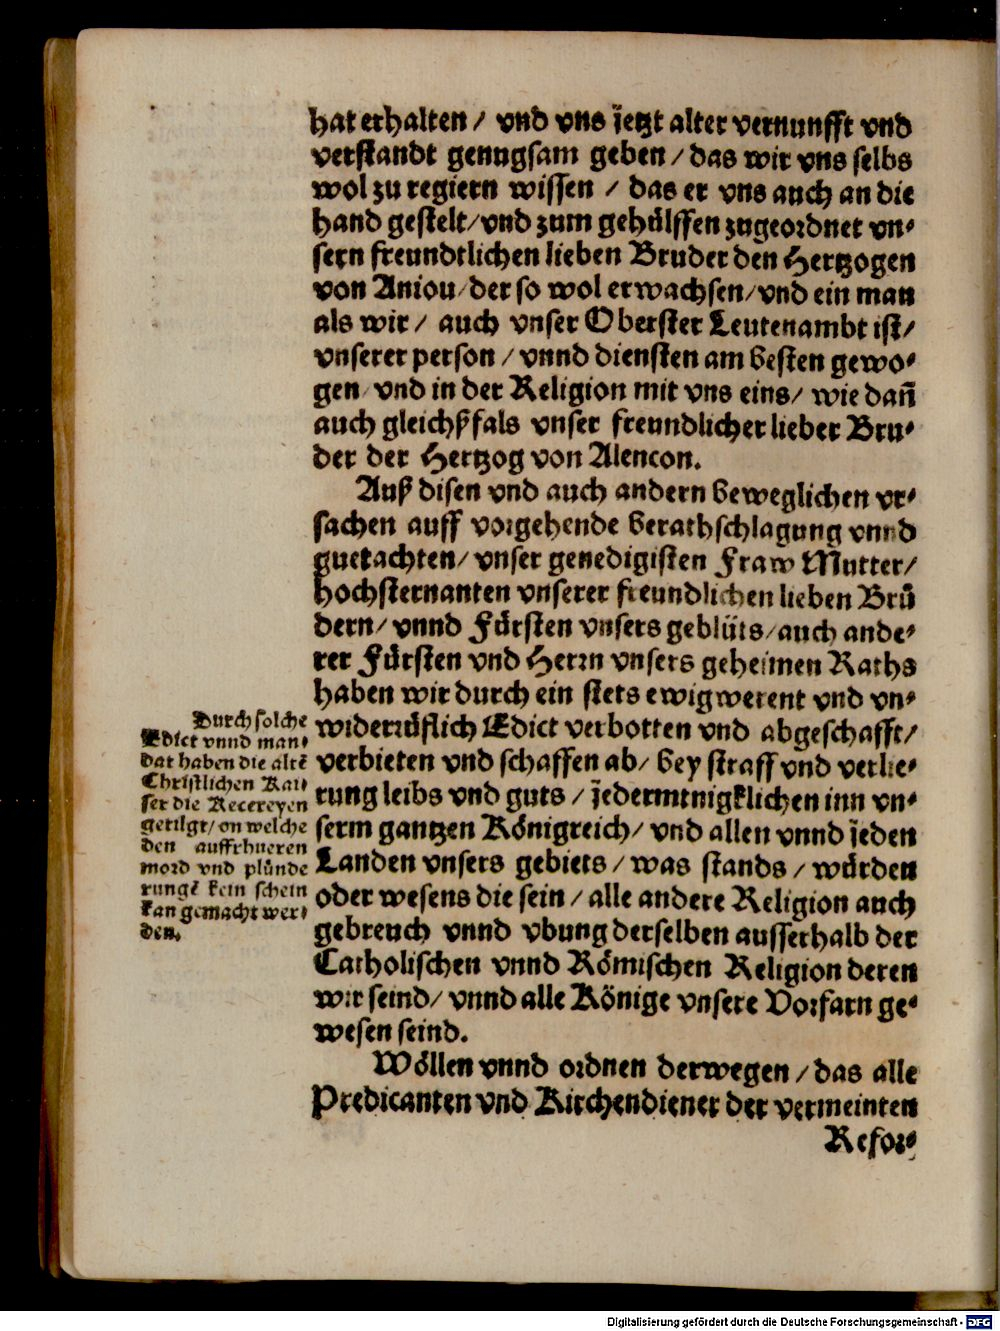 hat erhalten / vnd vns jetzt alter vernunfft vnd
verstandt genugsam geben / das wir vns selbs
wol zu regiern wissen / das er vns auch an die
hand gestelt / vnd zum gehülffen zugeordnet vn⸗
sern freundtlichen lieben Bruder den Hertzogen
von Aniou / der so wol erwachsen / vnd ein man
als wir / auch vnser Oberster Leutenambt ist /
vnserer person / vnnd diensten am besten gewo⸗
gen / vnd in der Religion mit vns eins / wie dañ
auch gleichßfals vnser freundlicher lieber Bru⸗
der der Hertzog von Alencon.
Auß disen vnd auch andern beweglichen vr⸗
sachen auff vorgehende berathschlagung vnnd
guetachten / vnser genedigisten Fraw Mutter /
hochsternanten vnserer freundlichen lieben Brü
dern / vnnd Fürsten vnsers geblüts / auch ande⸗
rer Fürsten vnd Herrn vnsers geheimen Raths
haben wir durch ein stets ewigwerent vnd vn⸗
widerrüflich Edict verbotten vnd abgeschafft /
verbieten vnd schaffen ab / bey straff vnd verlie⸗
rung leibs vnd guts / jedermenigklichen inn vn⸗
serm gantzen Königreich / vnd allen vnnd jeden
Landen vnsers gebiets / was stands / würden
oder wesens die sein / alle andere Religion auch
gebreuch vnnd vbung derselben ausserhalb der
Catholischen vnnd Römischen Religion deren
wir seind / vnnd alle Könige vnsere Vorfarn ge⸗
wesen seind.
Wöllen vnnd ordnen derwegen / das alle
Predicanten vnd Kirchendiener der vermeinten
Refor⸗
Durch solche
Edict vnnd man⸗
dat haben die altẽ
Christlichen Kai⸗
ser die Kecereyen
getilgt / on welche
den auffrhueren
mord vnd plünde
rungẽ kein schein
kan gemacht wer⸗
den.
Digitalisierung gefördert durch die Deutsche Forschungsgemeinschaft - DFG